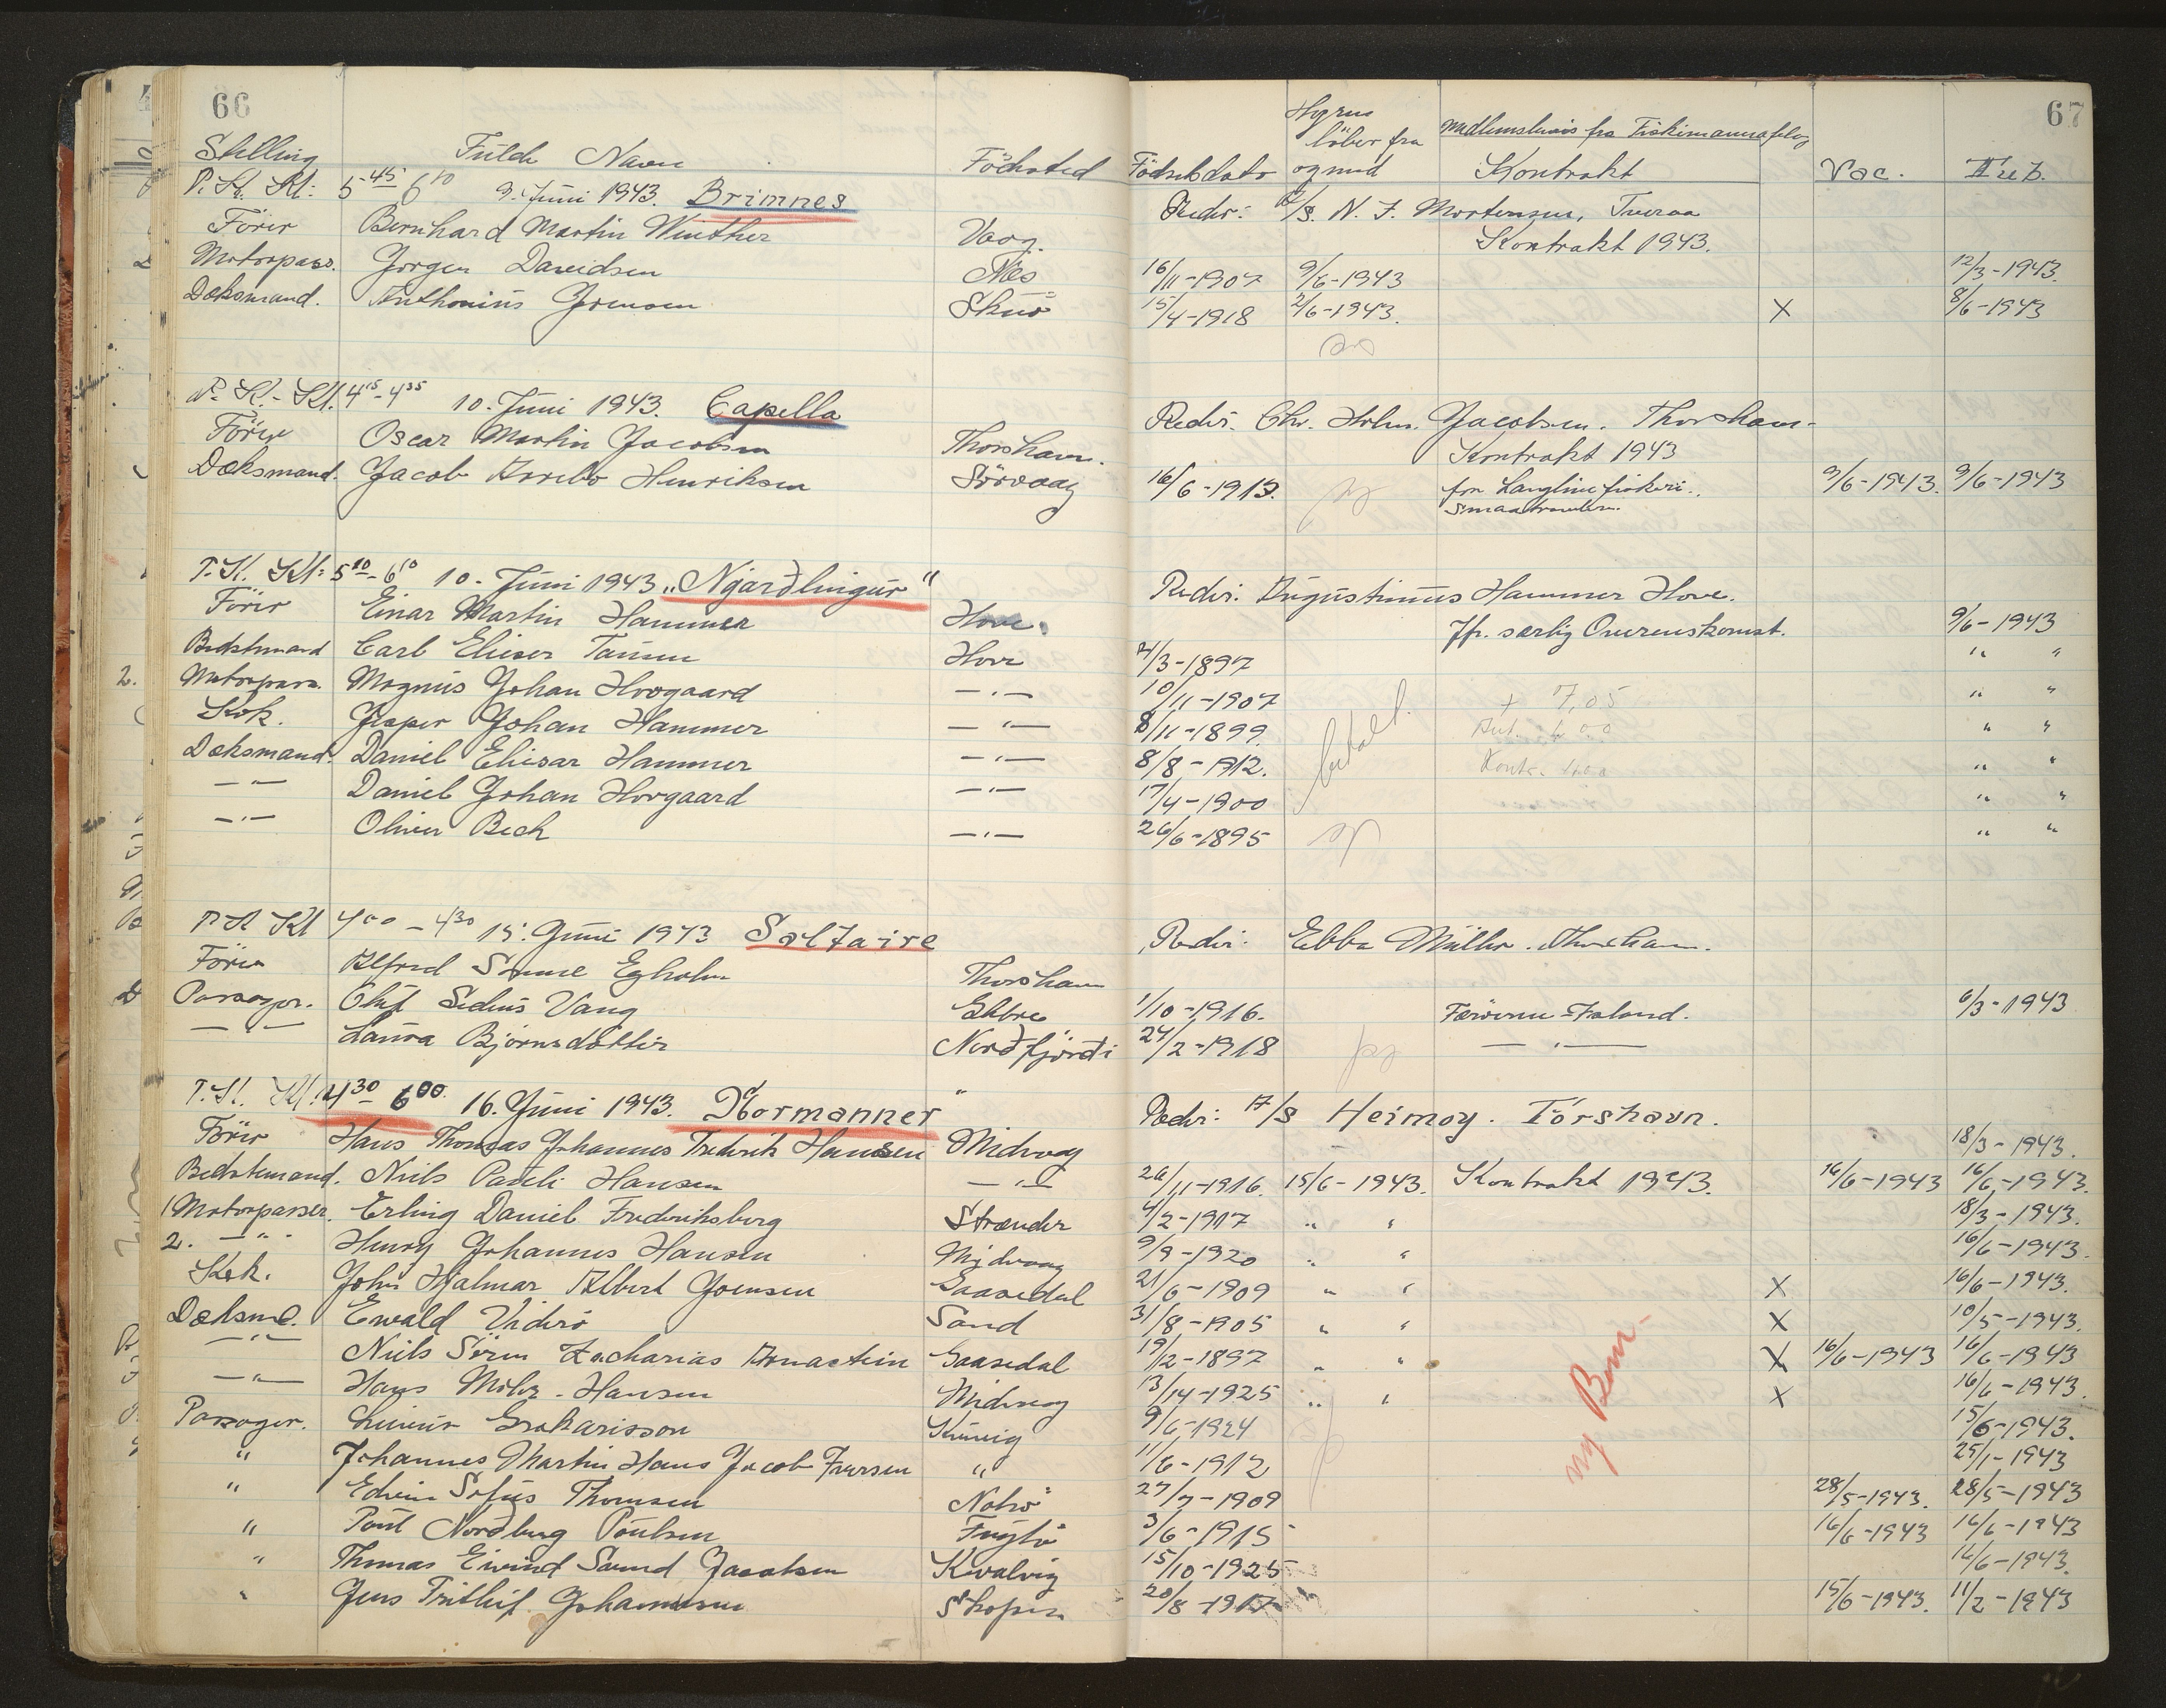 66
67
Stilling Fulde Navn Födested Födselsdato Hyren löber fra og med Medlemsbevis fra Fiskimannafelag Kontrakt Vac.
P. Kl. Kl: 5 45 6 10 9. Juni 1943. Brimnes Reder: A/S. N. J. Mortensen, Tveraa
Förer Bernhard Martin Winther Vaag. Kontrakt 1943.
Motorpass. Jorgen Davidsen Næs 16/11-1907 9/6-1943 12/3-1943.
Dæksmand. Anthonius Joensen Skuö 15/4-1918 2/6-1943. X 8/6-1943
Kl. 4 15-4 35 10. Juni 1943. Capella Reder. Chr. Holm. Jacobsen. Thorshavn.
Förer Oscar Martin Jacobsen Thorshavn. Kontrakt 1943
Dæksmand. Jacob Arrebo Henriksen Sörvaag 16/6-1913. for Langlinefiskeri. 9/6-1943. 9/6-1943
Smaatrawlere.
P. Kl. Kl: 5 10-6 10 10. Juni 1943 „Njarðlingur" Reder: Augustinus Hammer Hove.
Förer Einar Martin Hammer Hove. Jfr. særlig Overenskomst. 9/6-1943
Bedstemand Carl Elieser Tausen Hove 2/3-1897 " "
2. Motorpass. Magnus Johan Hovgaard —"— 10/11-1907 + 7,05 " "
Kok. Jesper Johan Hammer —"— 8/11-1899. " "
Dæksmand. Daniel Eliesar Hammer —"— 8/8-1912. betalt. Kontr. " "
—"— Daniel Johan Hovgaard —"— 17/4-1900 " "
—"— Oliver Bech —"— 26/6-1895 " "
P. Kl Kl 4 00-4 30 15. Juni 1943 Saltaire Reder: Ebba Müller. Thorshavn.
Förer Alfred Sonne Egholm Thorshavn
Passager. Oluf Sedeus Vang 1/10-1916. Færøerne-Island. 6/3-1943
—"— Laura Björnsdóttir Norðfjörði 24/2-1918 —"—
P. Kl. Kl: 4 30 6 00. 16. Juni 1943. Normanner Reder: P/S Heimoy. Tórshavn.
Förer Hans Thomas Johannes Frederik Hansen Midvaag 18/3-1943.
Bedstemand. Niels Pauli Hansen —"— 26/11-1916. 15/6-1943. Kontrakt 1943. 16/6-1943 16/6-1943.
1 Motorpasser. Erling Daniel Frederiksberg Strænder 4/2-1917 " " 18/3-1943.
2. —"— Henry Johannes Hansen Midvaag 9/9-1920 " " 16/6-1943.
Kok. John Hjalmar Albert Joensen Gaasedal 21/6-1909 " " X 16/6-1943.
Dæksmd. Ewald Viderö Sand 31/8-1905 " " X 10/5-1943.
—"— Niels Sören Zacharias Gaasedal 19/12-1897 " " X 16/6-1943 16/6-1943
—"— Hans Mohr-Hansen Midvaag " " X 16/6-1943.
Passager. 9/6-1924 15/6-1943.
" Johannes Martin Hans Jacob Iversen " 11/6-1912 25/1-1943
" Edvin Sofus Thomsen Nolsö 27/7-1909 28/5-1943. 28/5-1943
" Poul Nordberg Poulsen Fuglö 3/6-1915 16/6-1943 16/6-1943
" Thomas Eivind Saund Jacobsen Kvalvig 15/10-1925 16/6-1943.
" Jens Frithif Johannesen Skopen 20/8-1917 15/6-1943. 11/2-1943
ny Bem.